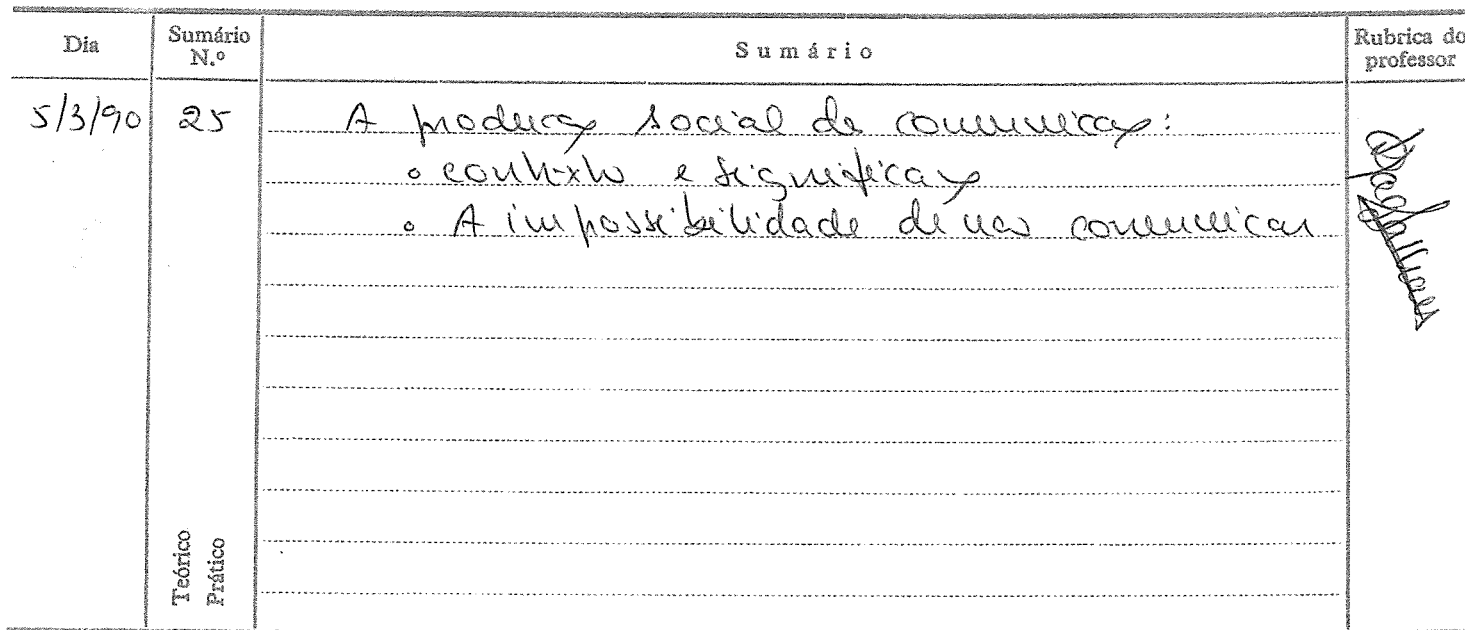 Dia
Sumário
N.º
Sumário
Rubrica do
professor
5/3/90
25
A produção social de comunicação:
o contexto e significação
o A impossibilidade de não comunicar
Teórico
Prático